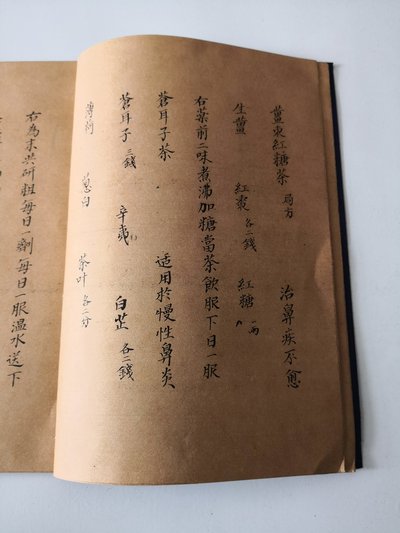 薑東紅糖茶 局方 治鼻疾不愈
生薑 紅棗 各二錢 紅糖 一兩
右药前二味煮沸加糖當茶飲服下日一服
蒼耳子茶 适用於慢性鼻炎
蒼耳子 三錢 辛夷 白芷 各二錢
薄荷 葱白 茶叶 各二分
右為末共研粗每日一劑每日一服温水送下